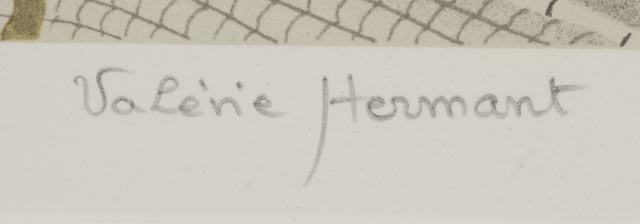 Valérie Hermant